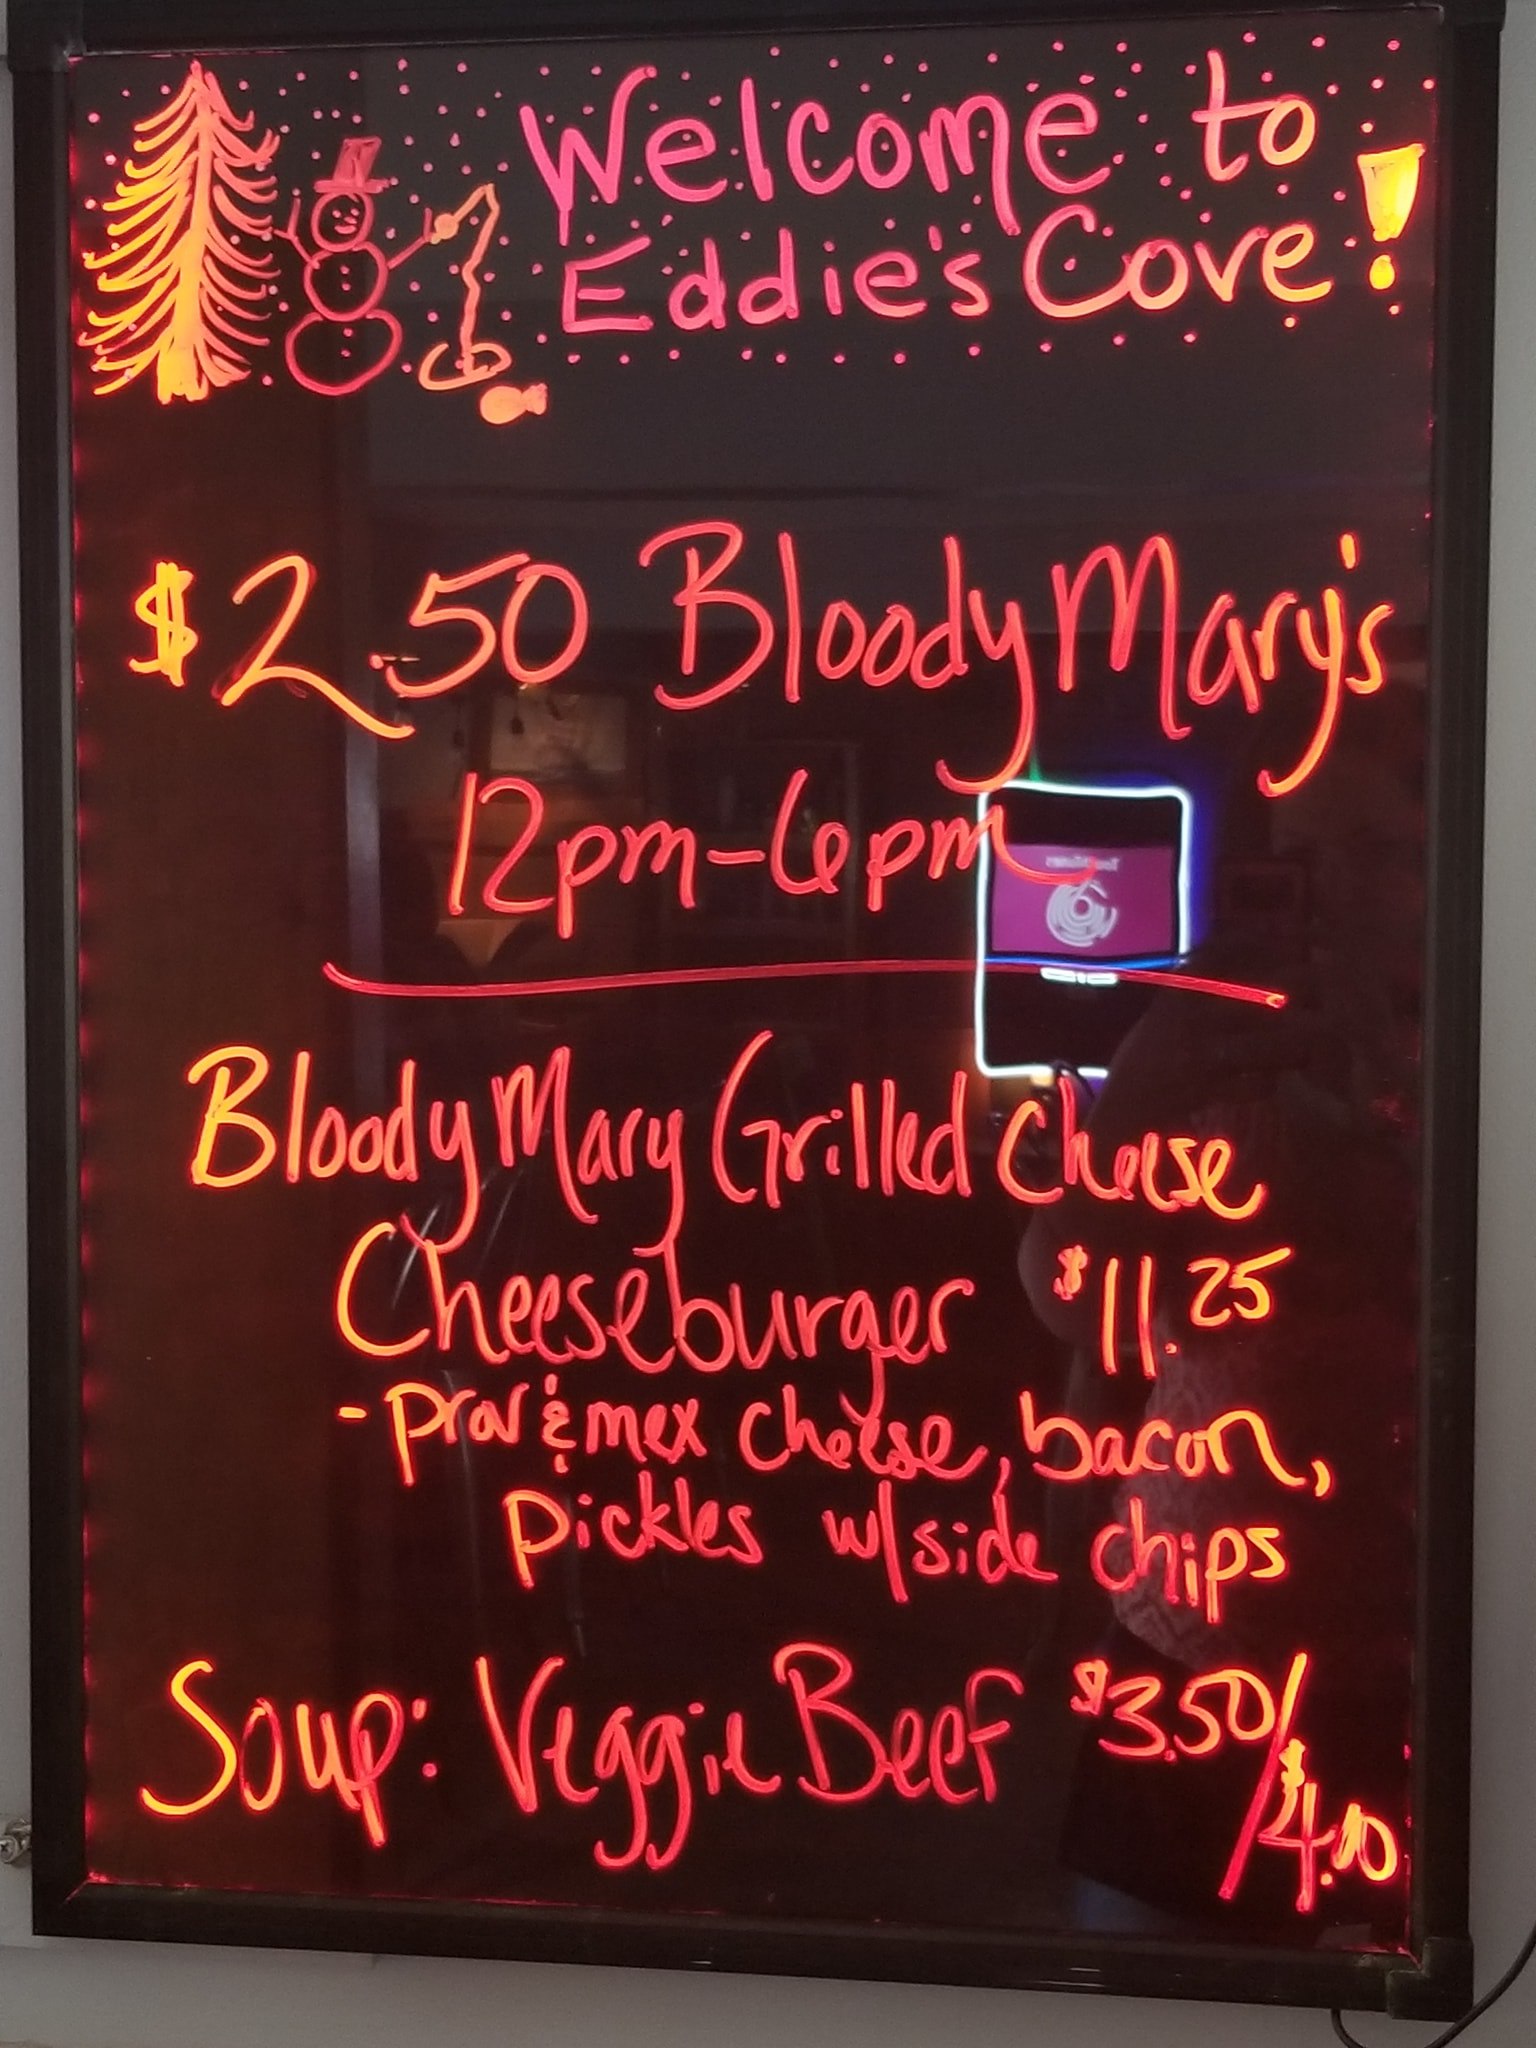 Welcome to
Eddie's Cove!
$2.50 Bloody Mary's
12pm-6pm
Bloody Mary Grilled Cheese
Cheeseburger $11.25
- Prov & mex cheese, bacon,
pickles w/side chips
Soup: Veggie Beef $3.50/
$4.00
TouchTunes